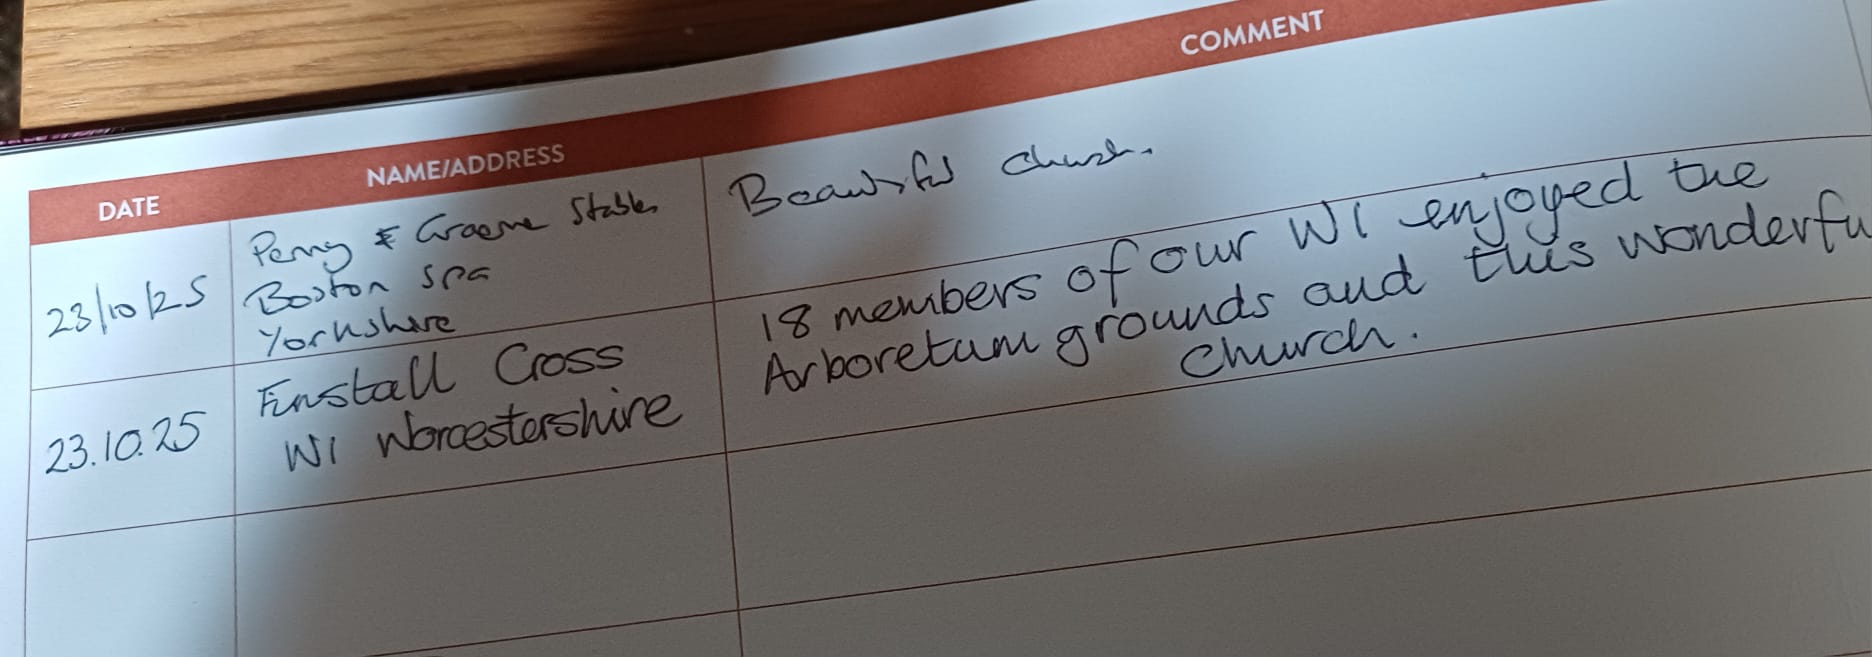 DATE NAME/ADDRESS COMMENT
23/10/25
Penny & Graeme Stables
Boston Spa
Yorkshire
Beautiful church.
23.10.25
Finstall Cross
WI Worcestershire
18 members of our WI enjoyed the
Arboretum grounds and this wonderfu
church.